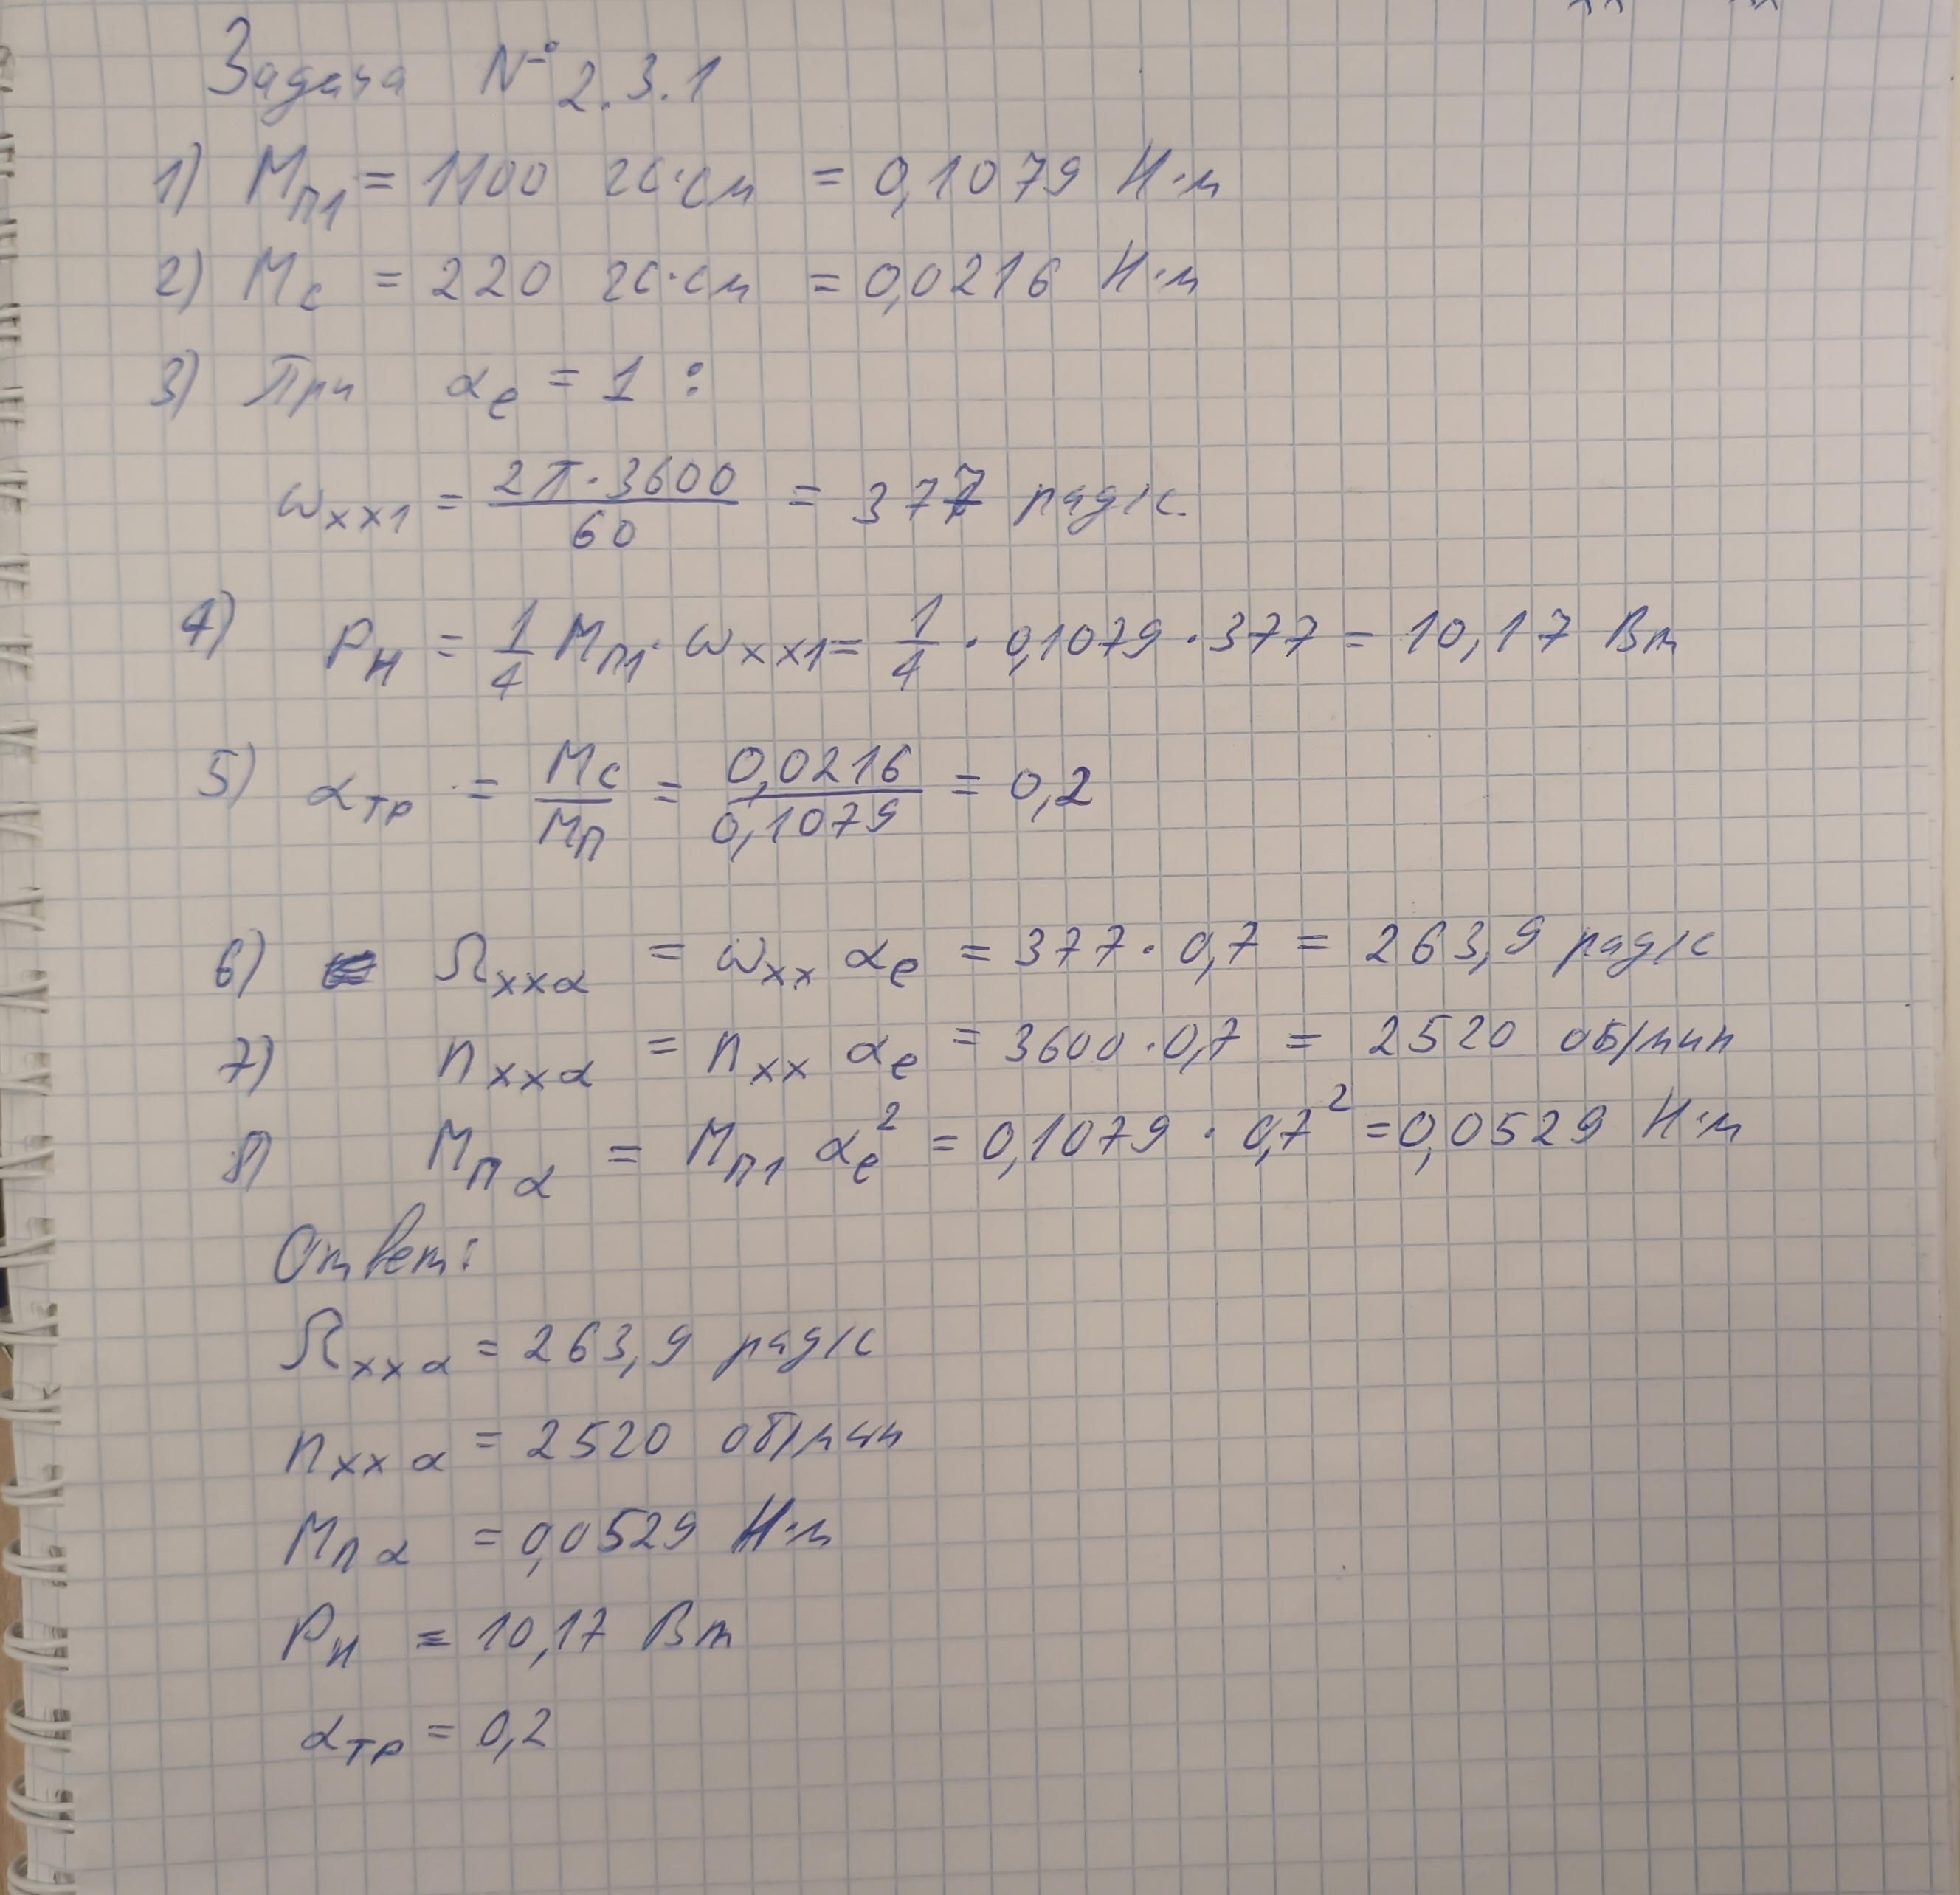 Задача № 2.3.1
1) Mп1 = 1100 гс·см = 0,1079 Н·м
2) Mс = 220 гс·см = 0,0216 Н·м
3) При αe = 1 :
ωxx1 = 2π·3600 / 60 = 377 рад/с.
4) Pн = 1/4 Mп1· ωxx1 = 1/4 · 0,1079 · 377 = 10,17 Вт
5) αтр = Mс/Mп = 0,0216/0,1079 = 0,2
6) Ωxxα = ωxx αe = 377 · 0,7 = 263,9 рад/с
7) nxxα = nxx αe = 3600 · 0,7 = 2520 об/мин
8) Mпα = Mп1 αe² = 0,1079 · 0,7² = 0,0529 Н·м
Ответ:
Ωxxα = 263,9 рад/с
nxxα = 2520 об/мин
Mпα = 0,0529 Н·м
Pн = 10,17 Вт
αтр = 0,2